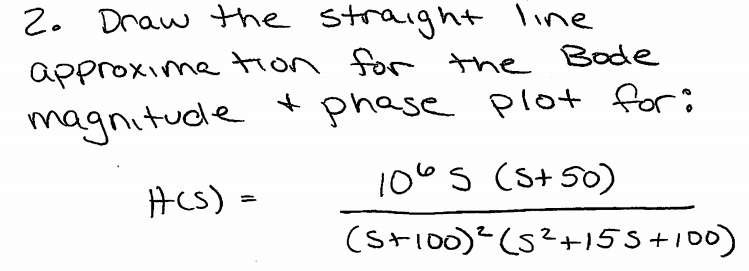 2. Draw the straight line
approximation for the Bode
magnitude + phase plot for:
H(s) = 10⁶ s (s+50) / (s+100)² (s²+15s+100)